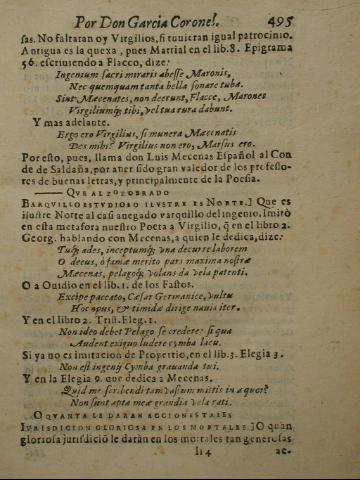 Por Don Garcia Coronel. 495
sas. No faltaran oy Virgilios, si tuuieran igual patrocinio.
Antigua es la quexa, pues Martial en el lib. 8. Epigrama
56. escriuiendo a Flacco, dize:
Ingenium sacri miraris abesse Maronis,
Nec quemquam tanta bella sonare tuba.
Sint Mæcenates, non deerunt, Flacce, Marones
Virgiliumq; tibi, vel tua rura dabunt.
Y mas adelante.
Ergo ero Virgilius, si munera Mæcinatis
Des mihi? Virgilius non ero, Marsus ero.
Por esto, pues, llama don Luis Mecenas Español al Con
de de Saldaña, por auer sido gran valedor de los professo-
res de buenas letras, y principalmente de la Poesia.
QVE AL ZOZOBRADO
BARQVILLO ESTVDIOSO ILVSTRE ES NORTE.] Que es
ilustre Norte al casi anegado varquillo del ingenio. Imitò
en esta metafora nuestro Poeta a Virgilio, q̃ en el libro 2.
Georg. hablando con Mecenas, a quien le dedica, dize:
Tuq; ades, inceptumq; vna decurre laborem
O decus, ò famæ merito pars maxima nostræ
Mæcenas, pelagoq; volans da vela patenti.
O a Ouidio en el lib. 1. de los Fastos.
Excipe paccato, Cæsar Germanice, vultu
Hoc opus, & timidæ dirige nauis iter.
Y en el libro 2. Trist. Eleg. 1.
Non ideo debet Pelago se credere: si qua
Audent exiguo ludere cymba lacu.
Si ya no es imitacion de Propertio, en el lib. 3. Elegia 3.
Non est ingenij Cymba grauanda tui.
Y en la Elegia 9. que dedica a Mecenas.
Quid me scribendi tam vastum mittis in æquor?
Non sunt apta meæ grandia vela rati.
O QVANTA LE DARAN ACCIONES TALES
IVRISDICION GLORIOSA EN LOS MORTALES.] O quan
gloriosa jurisdiciõ le daràn en los mortales tan generosas
Ii 4 ac-